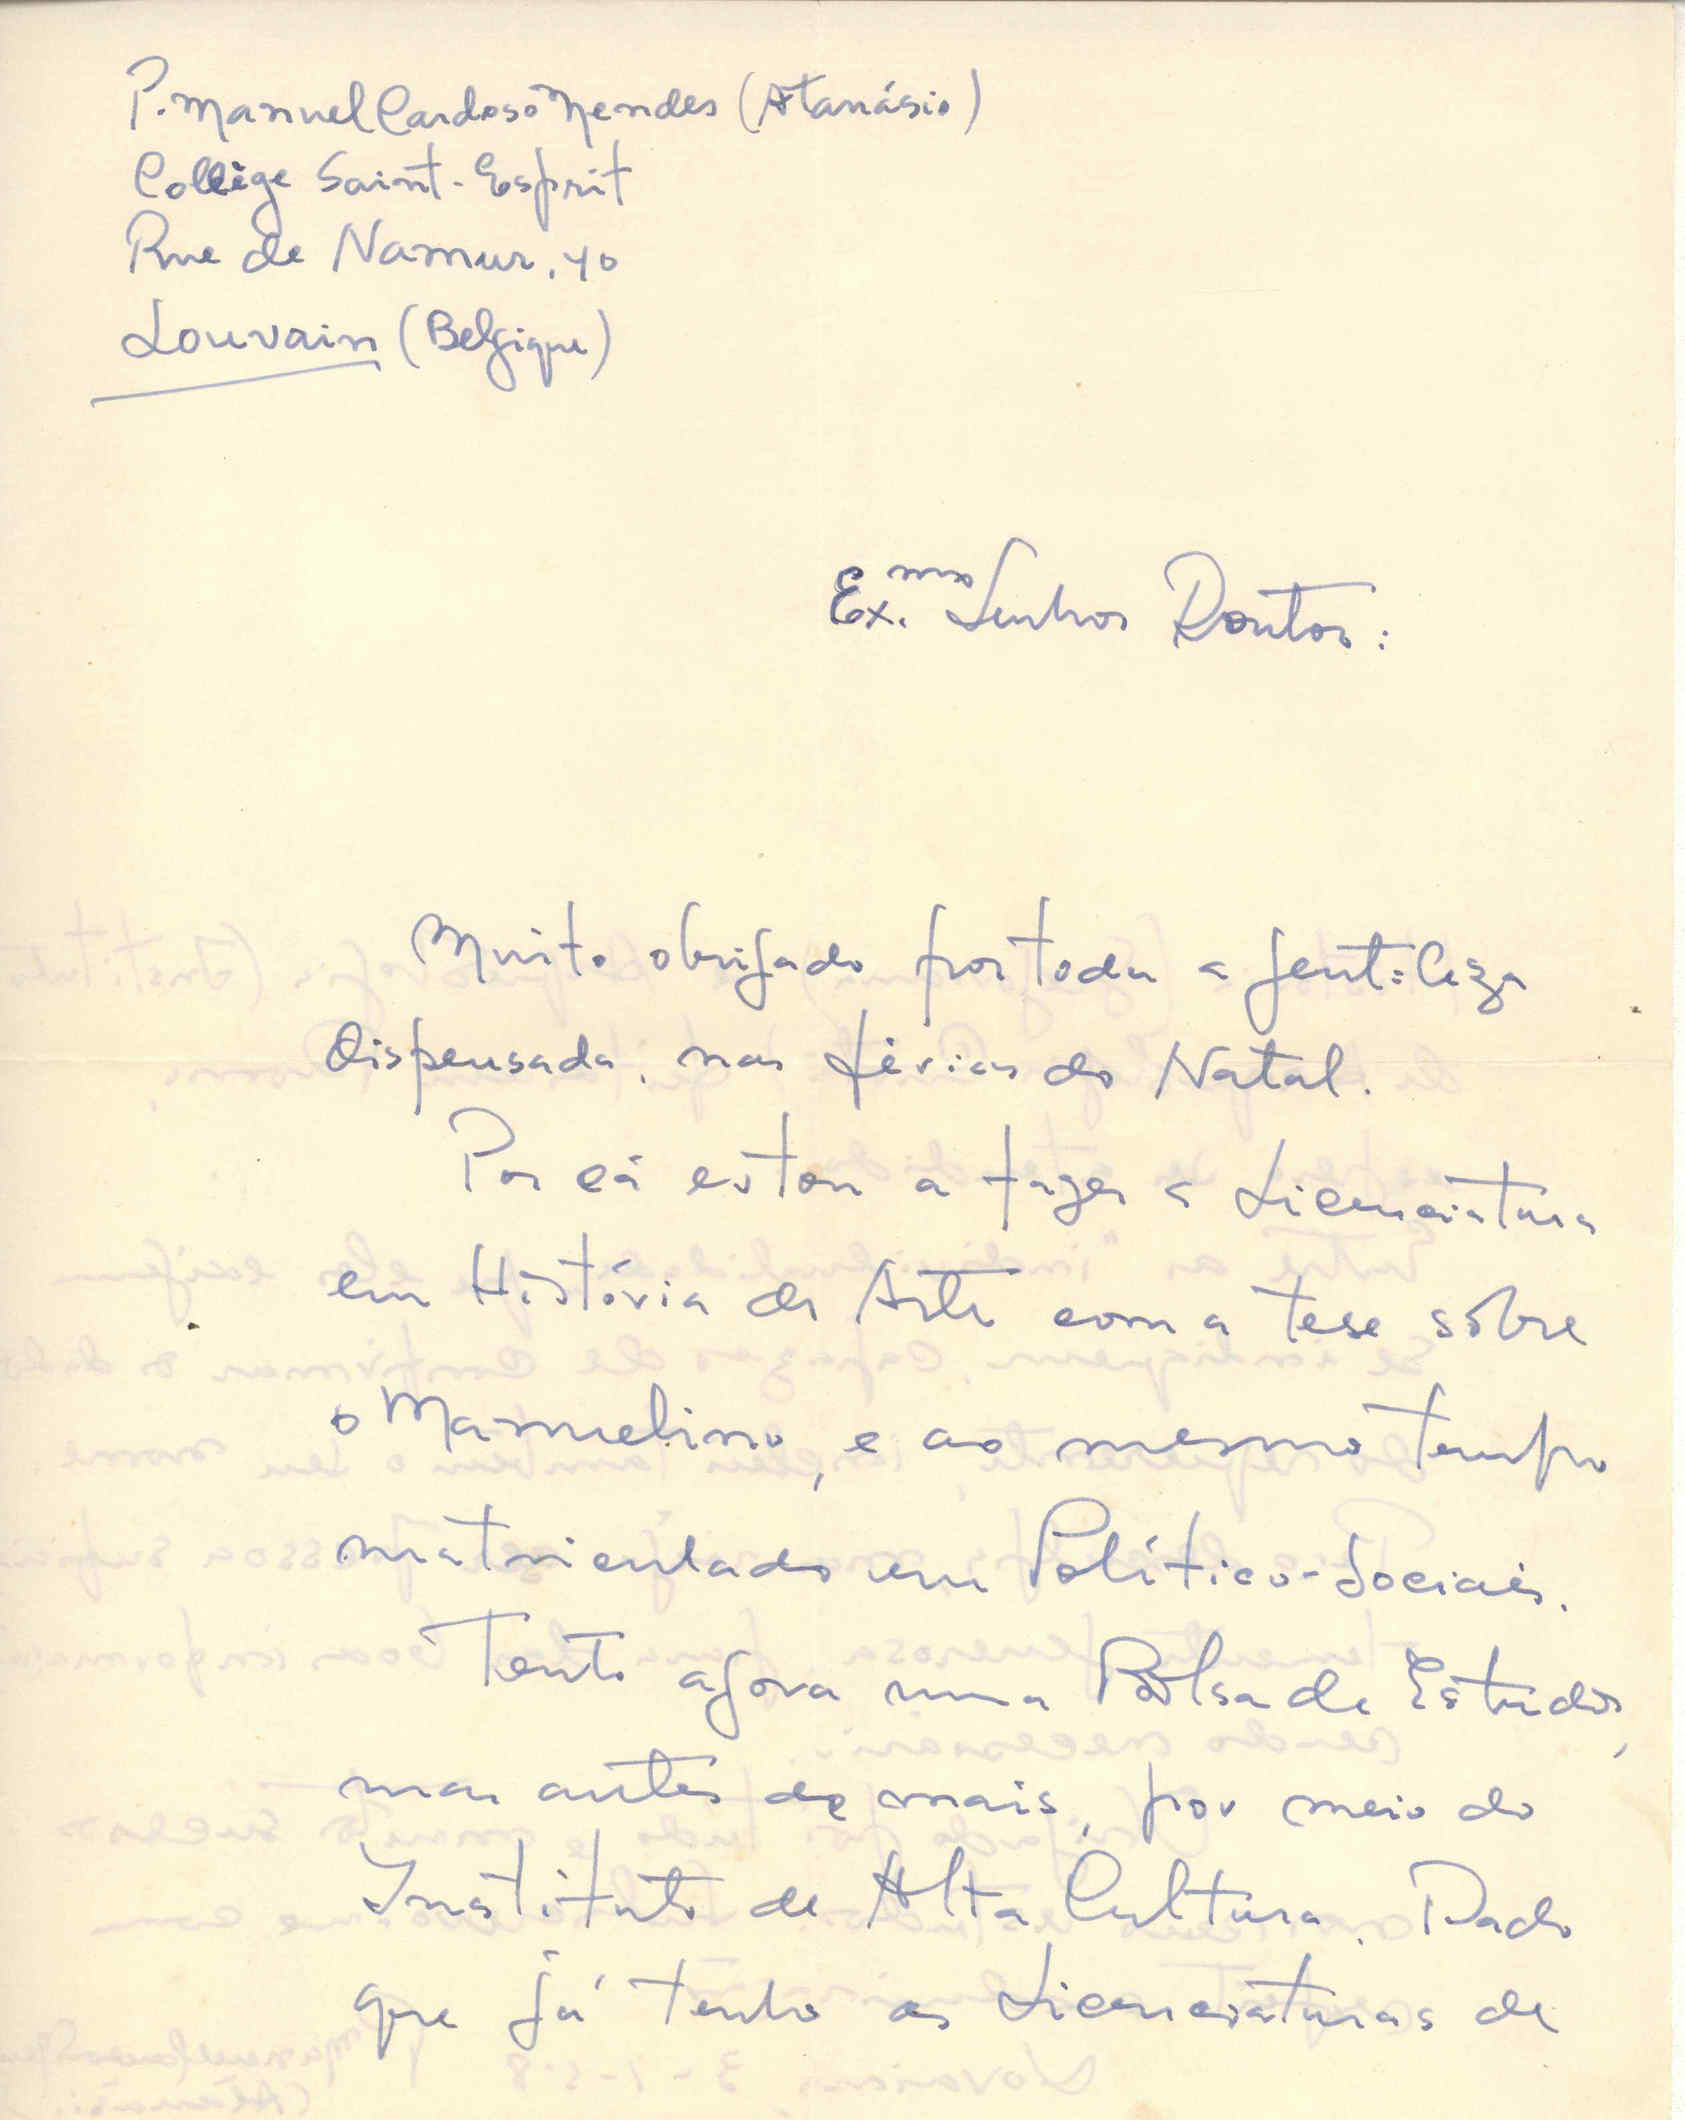 P. Manuel Cardoso Mendes (Atanásio)
Collège Saint-Esprit
Rue de Namur, 40
Louvain (Belgique)
Ex.mo Senhor Doutor:
Muito obrigado por toda a gentileza
dispensada, nas férias do Natal.
Por cá estou a fazer a Licenciatura
em História da Arte com a tese sôbre
o Manuelino, e ao mesmo tempo
matriculado em Político-Sociais.
Tento agora uma Bolsa de Estudos,
mas antes de mais, por meio do
Instituto de Alta Cultura. Dado
que já tenho as Licenciaturas de